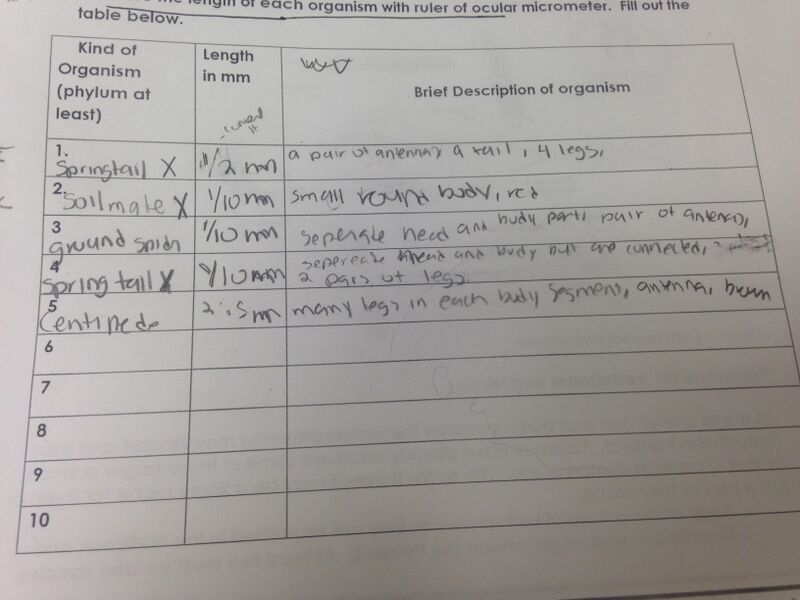 the length of each organism with ruler of ocular micrometer. Fill out the
table below.
Kind of
Organism
(phylum at
least)
Length
in mm
Brief Description of organism
1.
Springtail X
1/2 mm
a pair of antenna, a tail, 4 legs,
2.
Soilmate X
1/10 mm
small round body, red
3
ground spidr
1/10 mm
seperate head and body part, pair of antenna,
4
Spring tail X
1/10 mm
sepereate head and body but are connected,
2 pairs of legs.
5
Centipede
2.5 mm
many legs in each body segment, antenna, brown
6
7
8
9
10